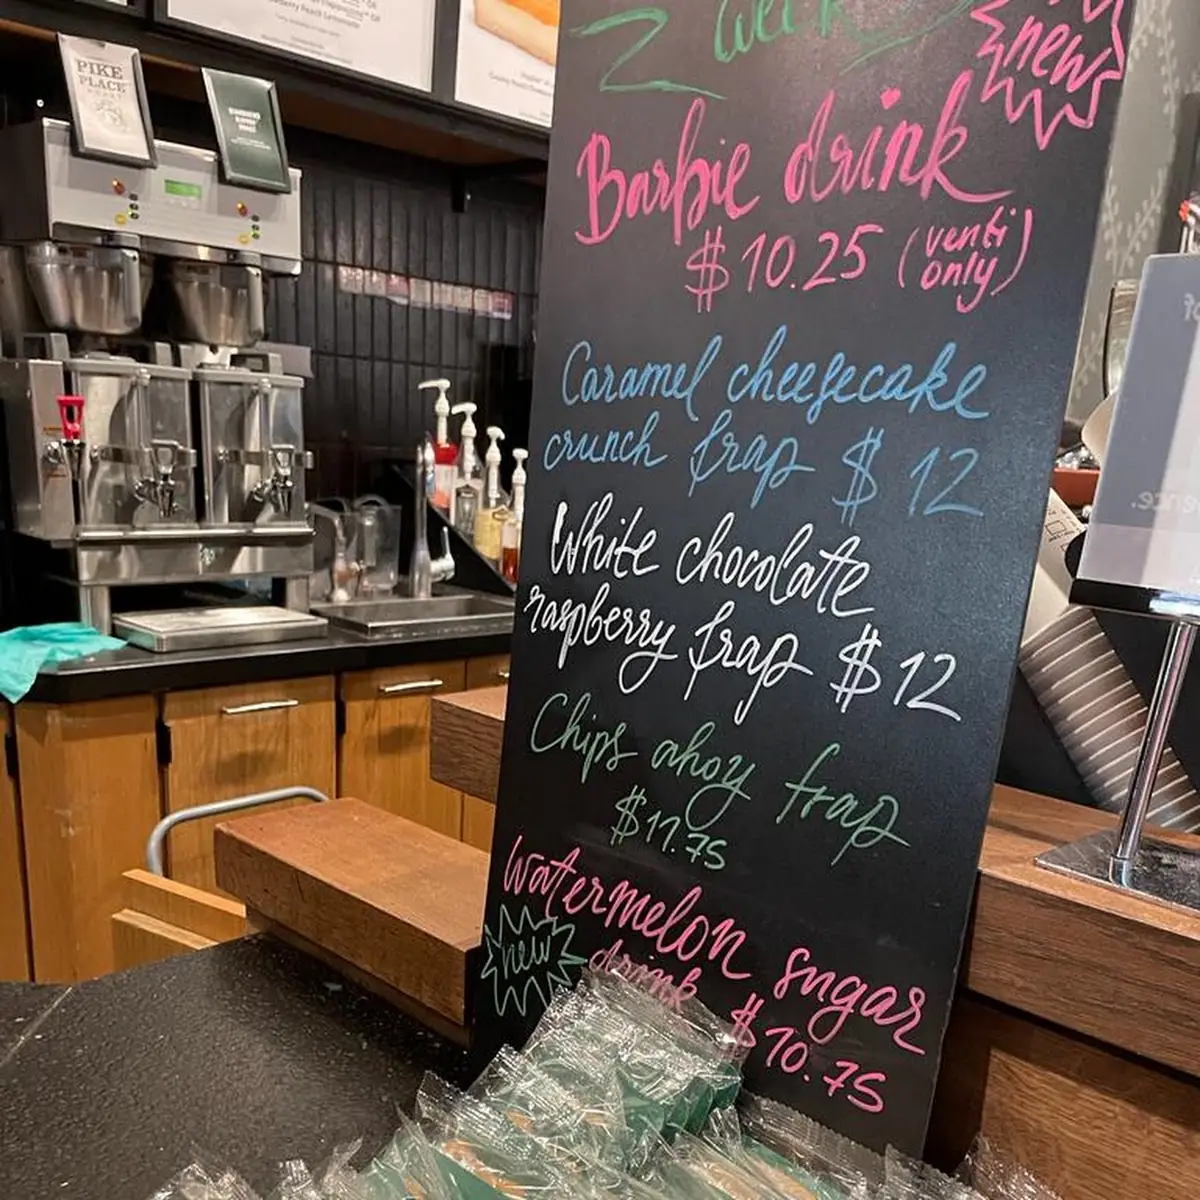 PIKE
PLACE
ROAST
week
new
Barbie drink
$10.25 (venti
only)
Caramel cheesecake
crunch frap $12
White chocolate
raspberry frap $12
Chips ahoy frap
$11.75
Watermelon sugar
new
drink $10.75